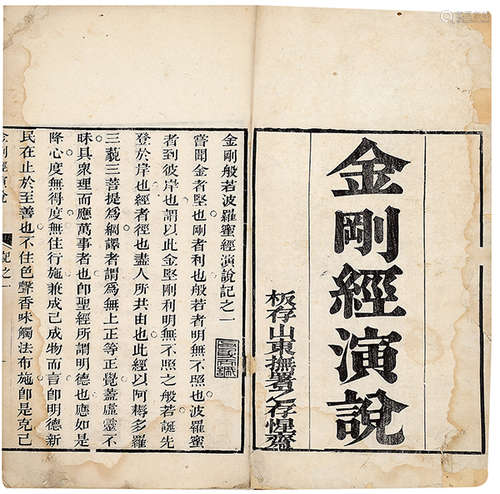 金剛經演說
板存山東撫署之存惺齋
金剛般若波羅蜜經演說記之一
嘗聞金者堅也剛者利也般若者明無不照也波羅蜜
者到彼岸也謂以此金堅剛利明無不照之般若誕先
登於岸也經者徑也盡人所共由也此經以阿耨多羅
三藐三菩提為綱譯者謂為無上正等正覺蓋虛靈不
昧具衆理而應萬事者也即聖經所謂明德也應如是
降心度無得度無住行施兼成己成物而言即明德新
民在止於至善也不住色聲香味觸法布施即是克己
記之一